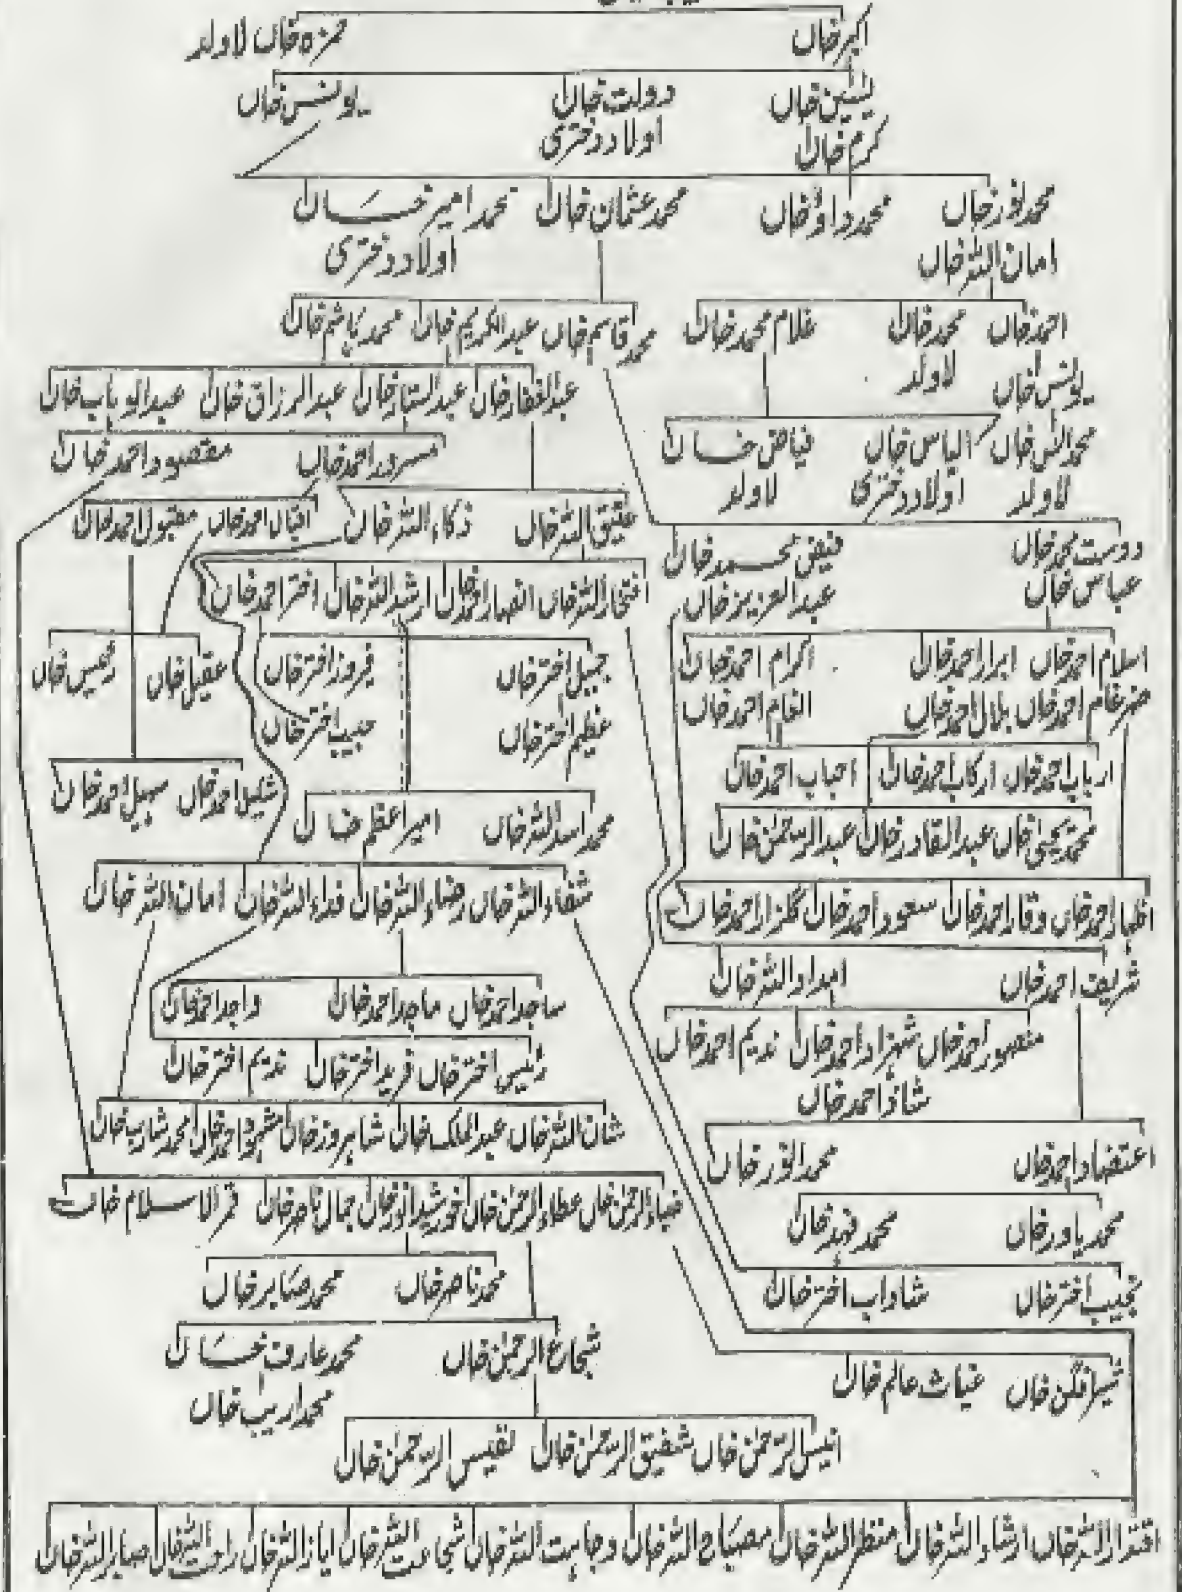 اکبر خاں حمزہ خاں لاولد
یٰسین خاں دولت خاں یونس خاں
کرم خاں اولاد دختری
محمد نور خاں محمد داؤد خاں محمد عثمان خاں محمد امیر خاں
امان اللہ خاں اولاد دختری
احمد خاں محمد خاں غلام محمد خاں محمد قاسم خاں عبدالکریم خاں محمد ہاشم خاں
یونس خاں لاولد عبدالغفار خاں عبدالستار خاں عبدالرزاق خاں عبدالوہاب خاں
محمد الٰس خاں الیاس خاں فیاض خاں مسرور احمد خاں مقصود احمد خاں
لاولد اولاد دختری لاولد عتیق اللہ خاں ذکاء اللہ خاں اقبال احمد خاں مقبول احمد خاں
دوست محمد خاں فیض محمد خاں
عباس خاں عبدالعزیز خاں افتخار اللہ خاں انصار احمد خاں ارشد اللہ خاں اختر احمد خاں
اسلام احمد خاں ابرار احمد خاں اکرام احمد خاں جمیل اختر خاں فیروز اختر خاں عقیل خاں
ضرغام احمد خاں بلال احمد خاں انعام احمد خاں عظیم اختر خاں حبیب اختر خاں
ارباب احمد خاں ارکاب احمد خاں احباب احمد خاں شکیل احمد خاں سہیل احمد خاں
محمد یحیٰی خاں عبدالقادر خاں عبدالرحمٰن خاں محمد اسد اللہ خاں امیر اعظم خاں
اظہار احمد خاں وقار احمد خاں سعود احمد خاں گلزار احمد خاں شفاء اللہ خاں رضاء اللہ خاں فداء اللہ خاں امان اللہ خاں
شریف احمد خاں امداد اللہ خاں ساجد احمد خاں ماجد احمد خاں واجد احمد خاں
منصور احمد خاں شہزاد احمد خاں ندیم احمد خاں رئیس اختر خاں فرید اختر خاں ندیم اختر خاں
شاذ احمد خاں
اعتضاد احمد خاں محمد انور خاں شان اللہ خاں عبدالملک خاں شاہروز خاں محمد شاریب خاں
محمد یاور خاں محمد فہد خاں ضیاء الرحمٰن خاں عطاء الرحمٰن خاں خورشید انور خاں جمال ناصر خاں قمر الاسلام خاں
نجیب اختر خاں شاداب اختر خاں محمد ناصر خاں محمد صابر خاں
شیر افگن خاں غیاث عالم خاں شجاع الرحمٰن خاں محمد عارف خاں
محمد اریب خاں
انیس الرحمٰن خاں شفیق الرحمٰن خاں نفیس الرحمٰن خاں
اقتدار اللہ خاں ارشاد اللہ خاں منتظر اللہ خاں مصباح اللہ خاں وجاہت اللہ خاں شجاعت اللہ خاں ایاز اللہ خاں راحت اللہ خاں صابر اللہ خاں